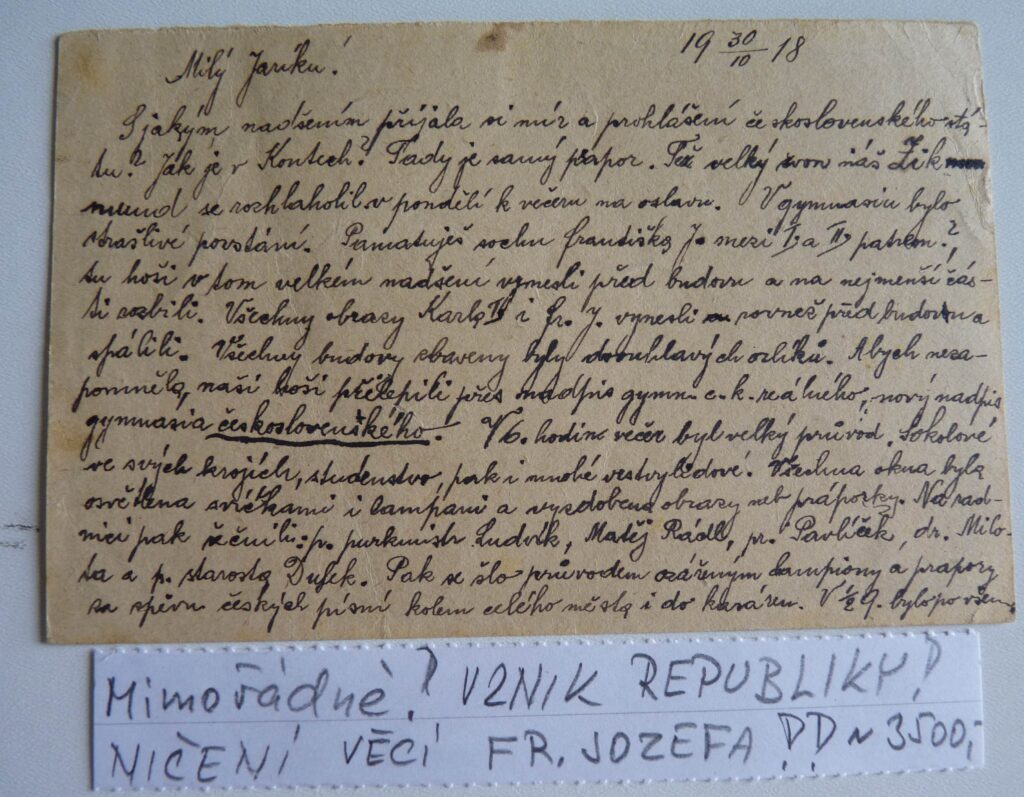 19 30/10 18
Milý Jaríku!
S jakým nadšením přijala si mír a prohlášení československého stá-
tu? Jak je v Kontech? Tady je samý prapor. Též velký zvon náš Zik
mund se rozhlaholil v pondělí k večeru na oslavu. V gymnasiu bylo
strašlivé povstání. Pamatuješ sochu Františka J. mezi I. a II. patrem?,
tu hoši v tom velkém nadšení vynesli před budovu a na nejmenší čás-
ti rozbili. Všechny obrazy Karla i Fr. J. vynesli rovněž před budovu a
spálili. Všechny budovy zbaveny byly dvouhlavých orlíků. Abych neza-
pomněla, naši hoši přelepili přes nadpis gymn. c. k. reálného, nový nadpis
gymnasia československého. V 6. hodin večer byl velký průvod, Sokolové
ve svých krojích, studenstvo, pak i mnohé vrstvy lidové. Všechna okna byla
osvětlena svíčkami i lampami a vyzdobena obrazy neb práporky. Na rad-
nici pak řečnili: p. purkmistr Ludvík, Matěj Rádl, pr. Pavlíček, dr. Milo-
ta a p. starosta Dušek. Pak se šlo průvodem ozářeným lampiony a prapory
za zpěvu českých písní kolem celého města i do kasáren. V ½ 9. bylo po všem
Mimořádné! VZNIK REPUBLIKY!
NIČENÍ VĚCÍ FR. JOZEFA !! 3500,-